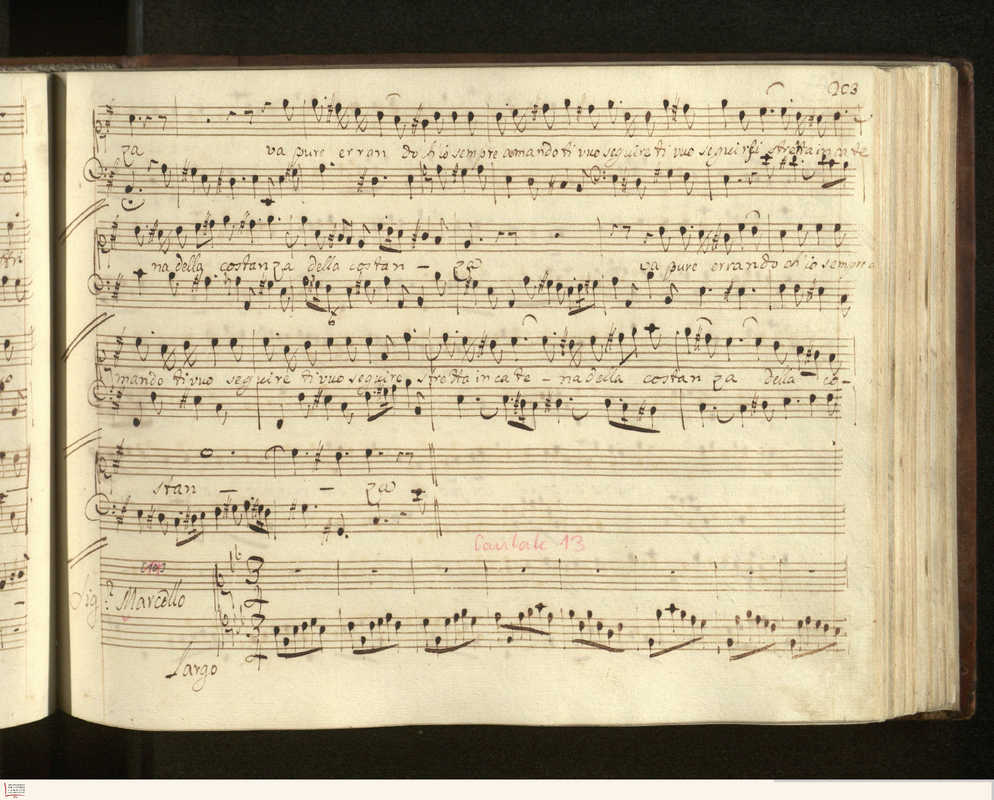 203
za va pure erran do ch'io sempre amando ti vuo seguire ti vuo seguirsi stretta in cate
na della costan za della costan - za va pure errando ch'io sempre a
mando ti vuo seguire ti vuo seguire stretta in cate - na della costan za della co-
stan - - za
Cantate 13
Sig.r Marcello
Largo